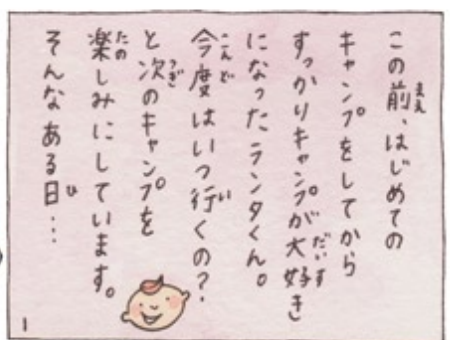 この前、はじめての
キャンプをしてから
すっかりキャンプが大好き
になったランタくん。
今度はいつ行くの?
と次のキャンプを
楽しみにしています。
そんなある日…
1